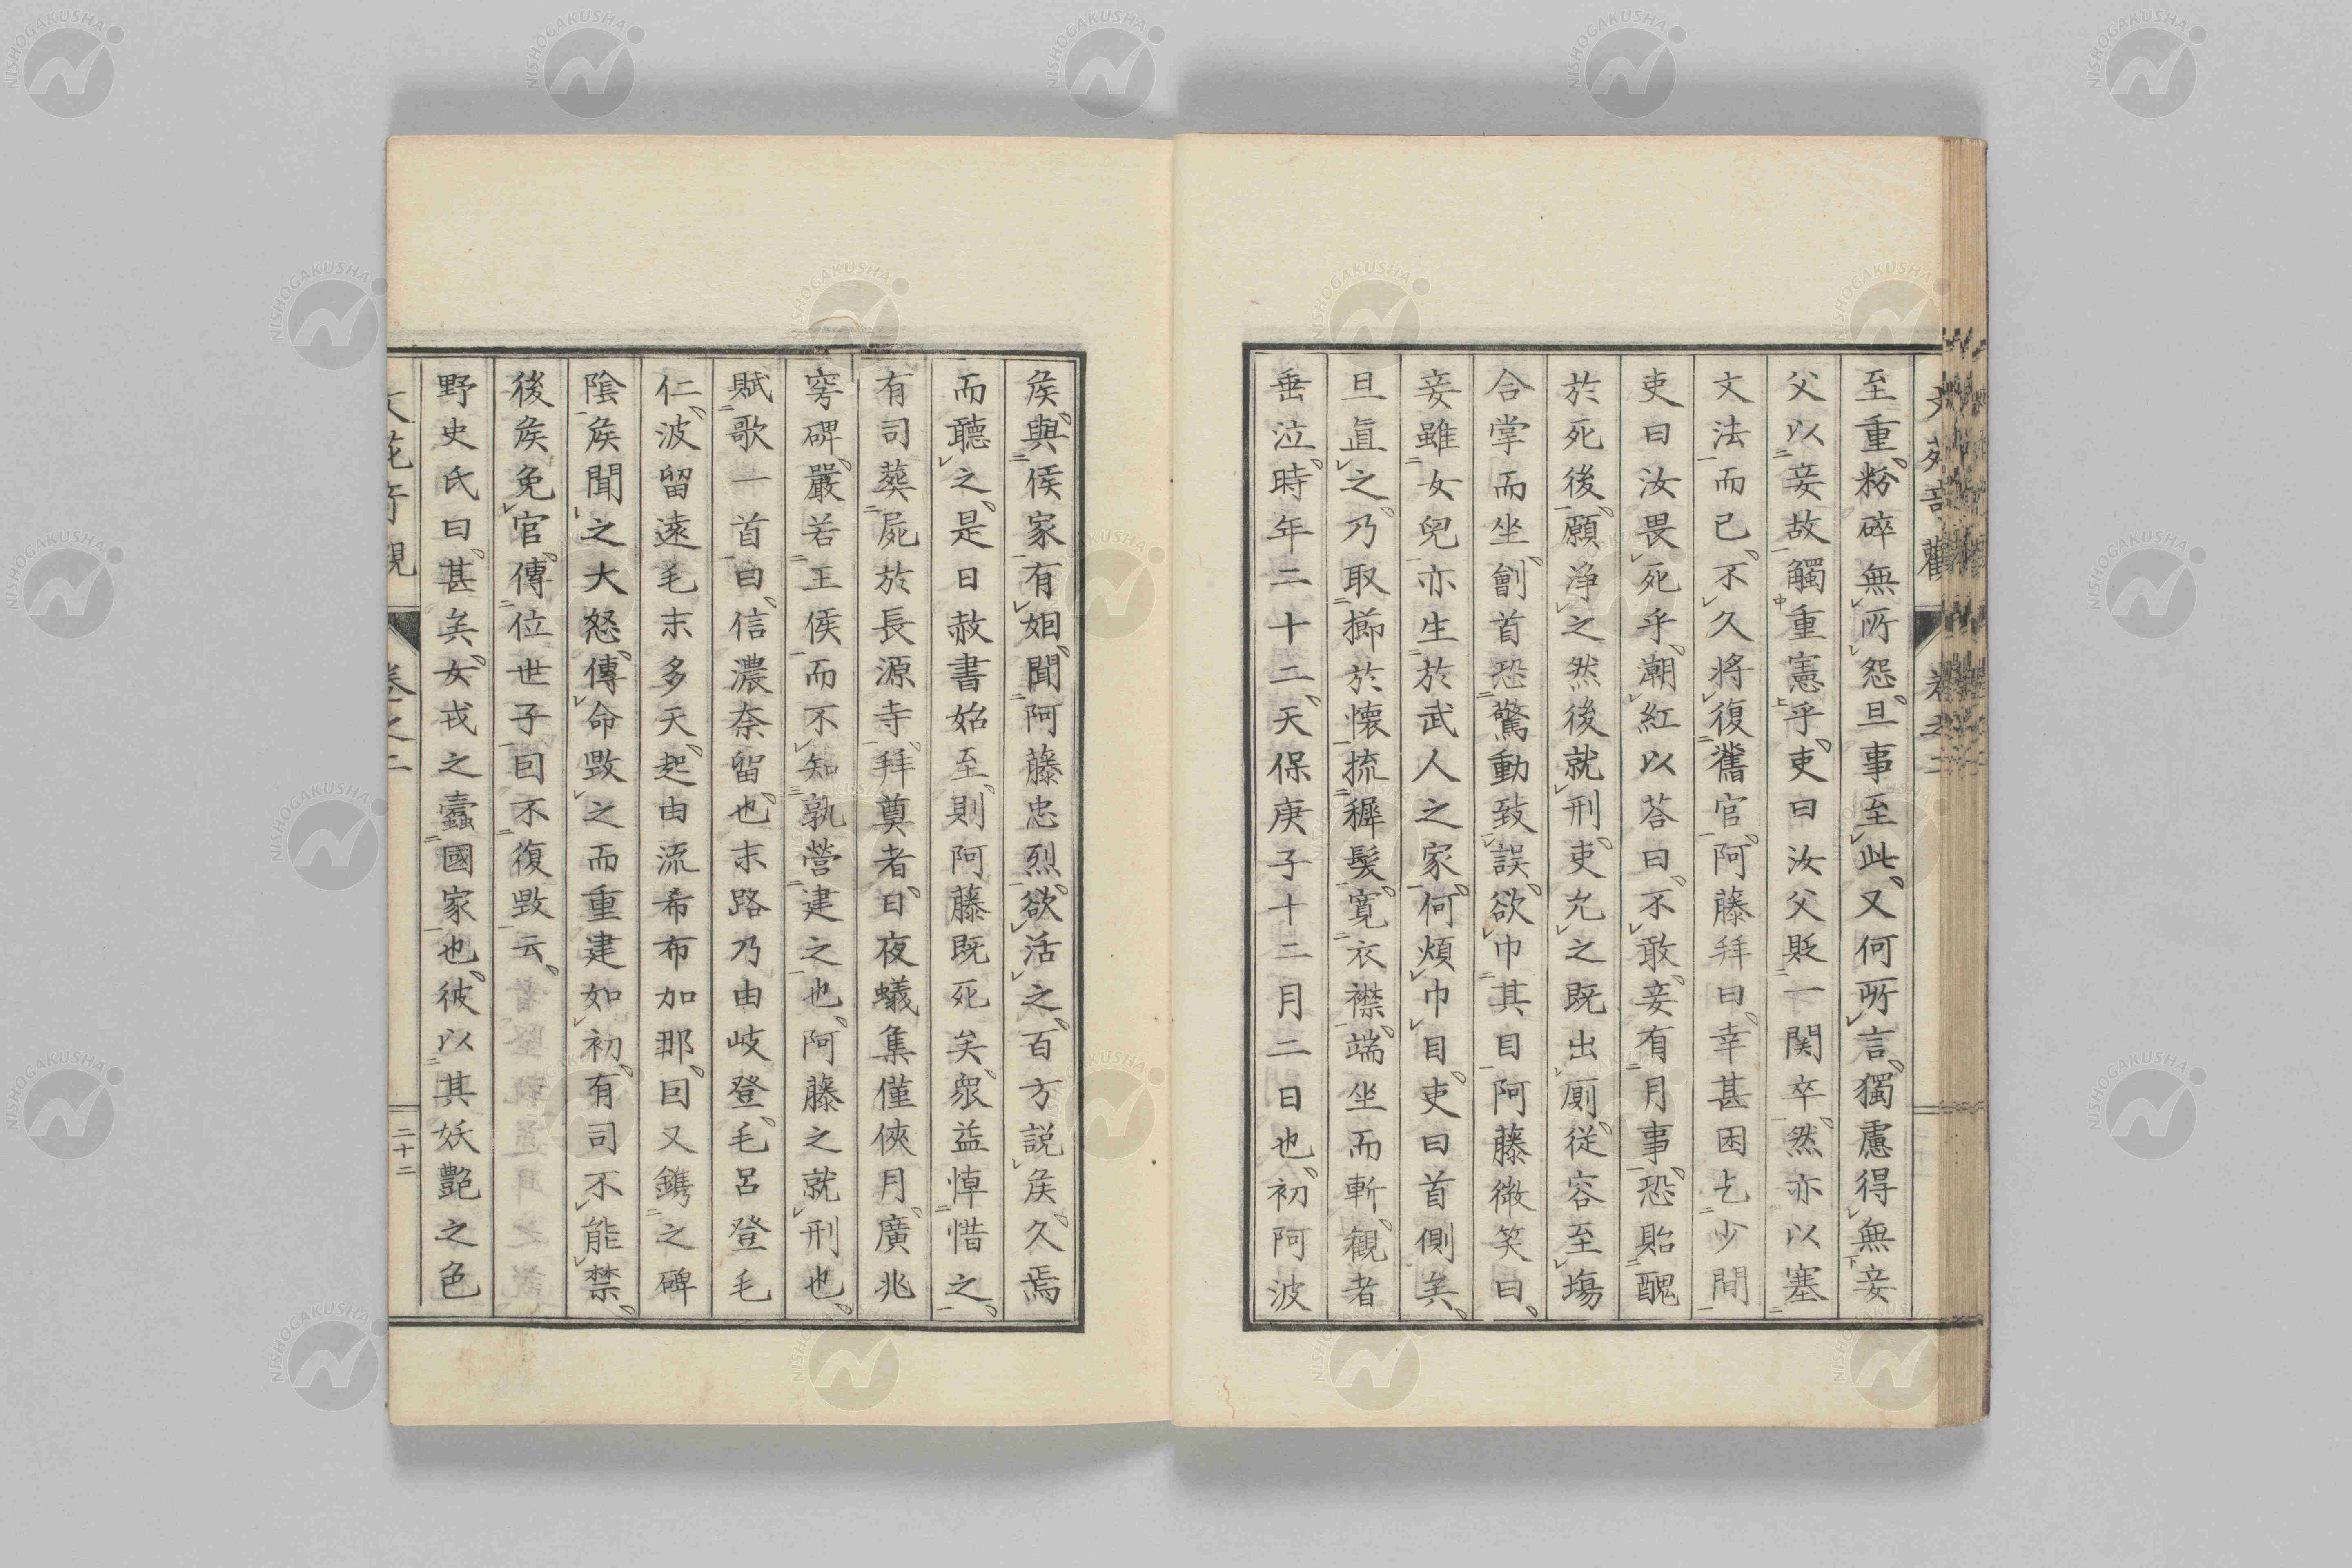 至重粉碎無所怨旦事至此又何所言獨慮得無妾
父以妾故觸重憲乎吏曰汝父貶一関卒然亦以塞
文法而已不久将復舊官阿藤拜曰幸甚因乞少間
吏曰汝畏死乎潮紅以荅曰不敢妾有月事恐貽醜
於死後願淨之然後就刑吏允之既出厠從容至塲
合掌而坐劊首恐驚動致誤欲巾其目阿藤微笑曰
妾雖女兒亦生於武人之家何煩巾目吏曰首側矣
旦眞之乃取擳於懐梳穉髪寛衣襟端坐而斬観者
垂泣時年二十二天保庚子十二月二日也初阿波
矦與侯家有姻聞阿藤忠烈欲活之百方説矦久焉
而聽之是日赦書始至則阿藤既死矣衆益悼惜之
有司葬屍於長源寺拜奠者日夜蟻集僅俠月廣兆
窄碑嚴若王侯而不知孰營建之也阿藤之就刑也
賦歌一首曰信濃奈留也末路乃由岐登毛呂登毛
仁波留遠毛末多天起由流希布加那囙又鐫之碑
陰矦聞之大怒傳命毀之而重建如初有司不能禁
後矦免官傳位世子囙不復毀云
野史氏曰甚矣女戎之蠹國家也彼以其妖艶之色
二十二